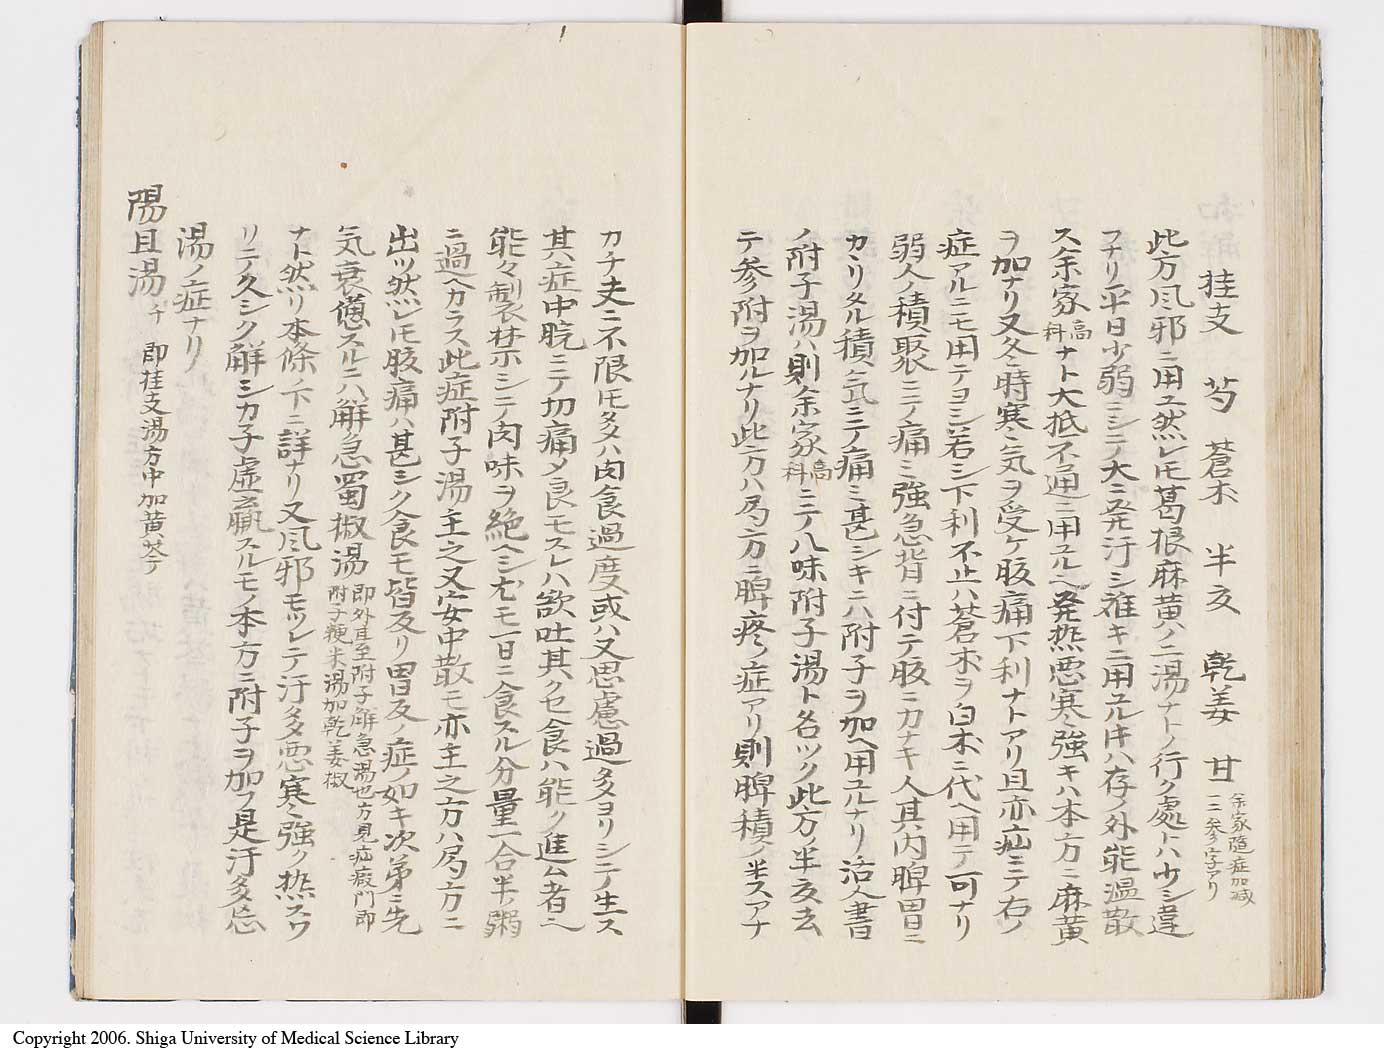 桂支 芍 蒼朮 半夏 乾姜 甘 余家隨症加減
一ニ參字アリ
此方風邪ニ用ユ然レ𪜈葛根麻黄ノ二湯ナトノ行ク處トハ少シ違
フナリ平日少弱ニシテ大ニ発汗シ難キニ用ユルキハ存ノ外能温散
ス余家高科ナト大抵不通ニ用ユルヘ発熱悪寒ミ強キハ本方ニ麻黄
ヲ加ナリ又冬ミ時寒ミ気ヲ受ケ腹痛下利ナトアリ且亦疝ミテ右ノ
症アルニモ用テヨシ若シ下利不止ハ蒼朮ヲ白朮ニ代ヘ用テ可ナリ
弱人ノ積聚ミノ痛ミ強急背ニ付テ腹ニカナキ人其内脾胃ニ
カヽリタル積気ニテ痛ミ甚シキニハ附子ヲ加ヘ用ユルナリ活人書
ノ附子湯ハ則余家高科ニテ八味附子湯ト名ツク此方ノ半夏去
テ參附ヲ加ルナリ此方ハ局方ニ脾疼ノ症アリ則脾積ノ半スアナ
カチ夫ニ不限𪜈多ハ肉食過度或ハ又思慮過多ヨリシテノ生ス
其ハ症中脘ニテ切痛メ良モスレハ欲吐其クセ食ハ能ク進ム者ヘ
能々製禁シテ肉味ヲ絶ヘシ尤モ一日ニ食スル分量一合半ノ粥
ニ過ヘカラス此症附子湯主之又安中散モ亦主之方ハ局方ニ
出ツ然レ𪜈腹痛ハ甚シク食モ皆反リ胃反ノ症ノ如キ次第ミ先
気衰憊スルニハ解急蜀椒湯 即外䑓附子解急湯也方見疝瘕門即
附子粳米湯加乾姜椒
ナト然リ本條ノ下ニ詳ナリ又風邪モツレテ汗多悪寒ミ強ク熱スワ
リニテ久シク解シカ子虚羸スルモノ本方ニ附子ヲ加フ是汗多忘
湯ノ症ナリ
陽旦湯 チ 即桂支湯方中加黄芩
Copyright 2006. Shiga University of Medical Science Library